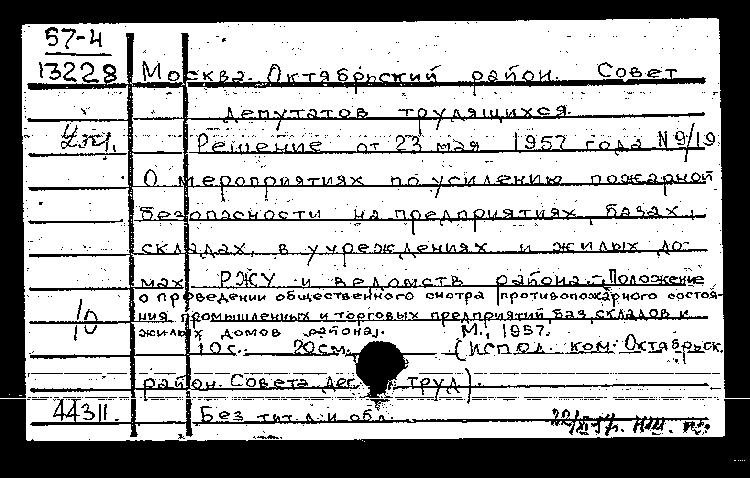 57-4
13228
Москва. Октябрьский район. Совет
депутатов трудящихся.
Решение от 23 мая 1957 года N 9/19
О мероприятиях по усилению пожарной
безопасности на предприятиях, базах,
складах, в учреждениях и жилых до-
мах РЖУ и ведомств района. - Положение
о проведении общественного смотра противопожарного состоя-
ния промышленных и торговых предприятий баз, складов и
жилых домов района/.
М., 1957.
10
10 с. 20 см. (Испол. ком. Октябрьск.
район. Совета деп. труд).
44311.
Без тит. л. и обл.